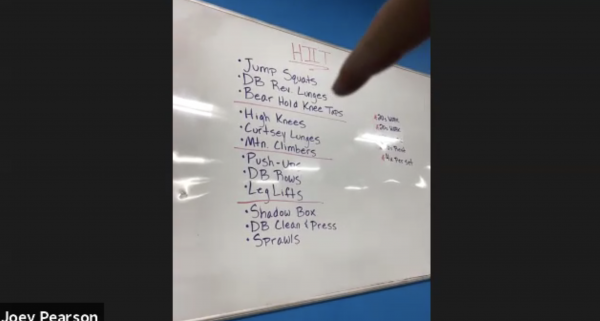 HIIT
• Jump Squats
• DB Rev. Lunges
• Bear Hold Knee Taps
• High Knees
• Curtsey Lunges
• Mtn. Climbers
• Push-Ups
• DB Rows
• Leg Lifts
• Shadow Box
• DB Clean & Press
• Sprawls
Joey Pearson